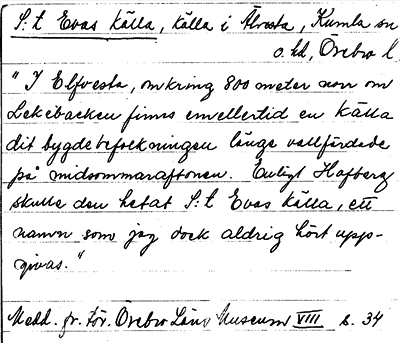 S:t Evas källa, källa i Älvesta, Kumla sn
o. hd, Örebro l.
"I Elfvesta, omkring 800 meter norr om
Lekebacken finns emellertid en källa
dit bygdebefolkningen länge vallfärdade
på midsommaraftonen. Enligt Hofberg
skulle den hetat S:t Evas källa, ett
namn som jag dock aldrig hört upp-
givas."
Medd. fr. För. Örebro Läns Museum VIII s. 34